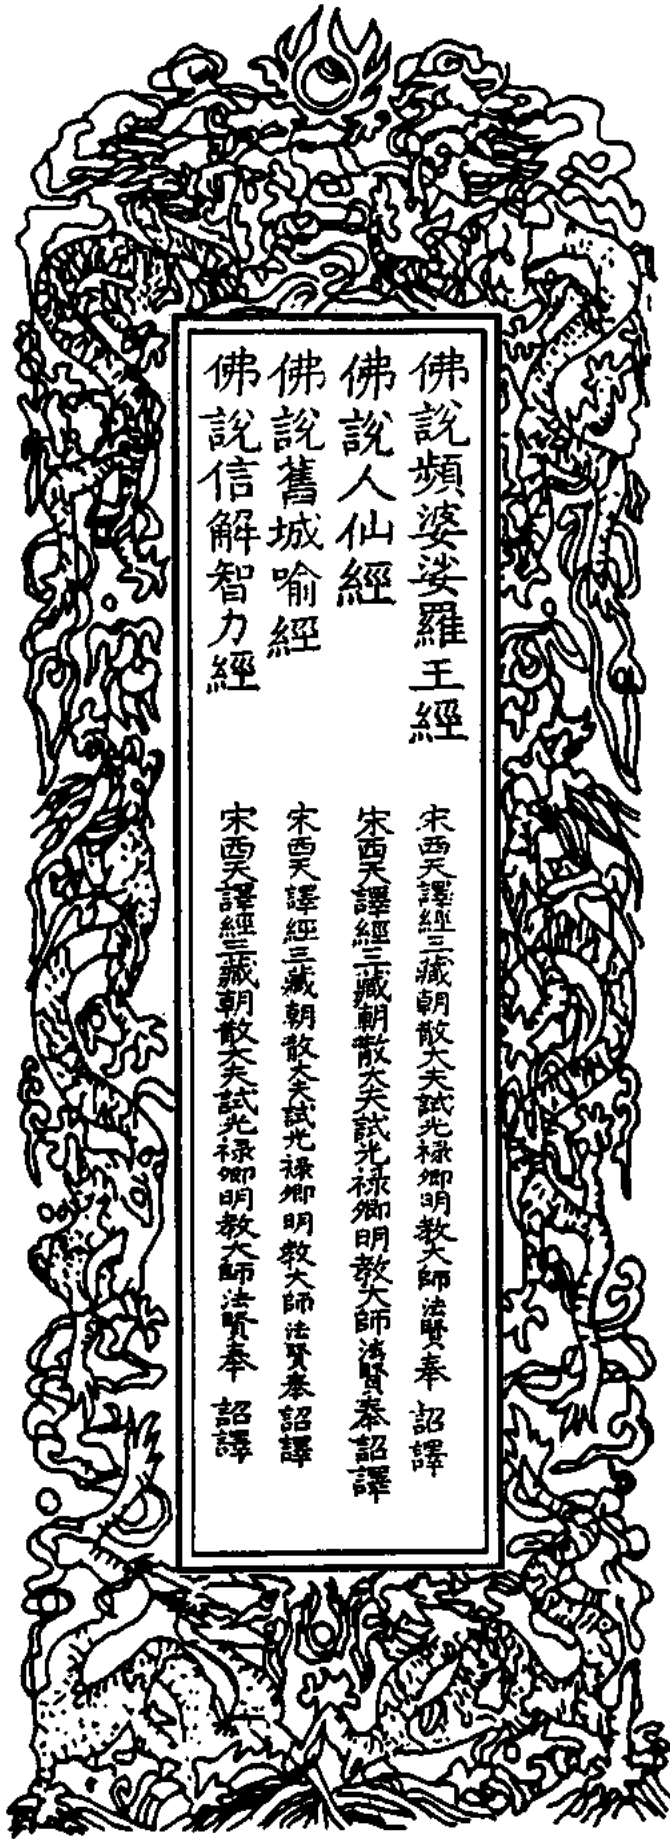 佛說頻婆娑羅王經　宋西天譯經三藏朝散大夫試光祿卿明教大師法賢奉　詔譯
佛說人仙經　宋西天譯經三藏朝散大夫試光祿卿明教大師法賢奉詔譯
佛說舊城喻經　宋西天譯經三藏朝散大夫試光祿卿明教大師法賢奉詔譯
佛說信解智力經　宋西天譯經三藏朝散大夫試光祿卿明教大師法賢奉　詔譯